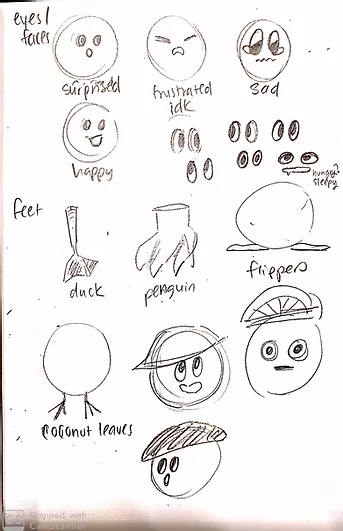 eyes/
faces
surprised
frustrated
idk
sad
happy
hungry?
sleepy
feet
duck
penguin
flippers
coconut leaves
CS Scanned with
CamScanner